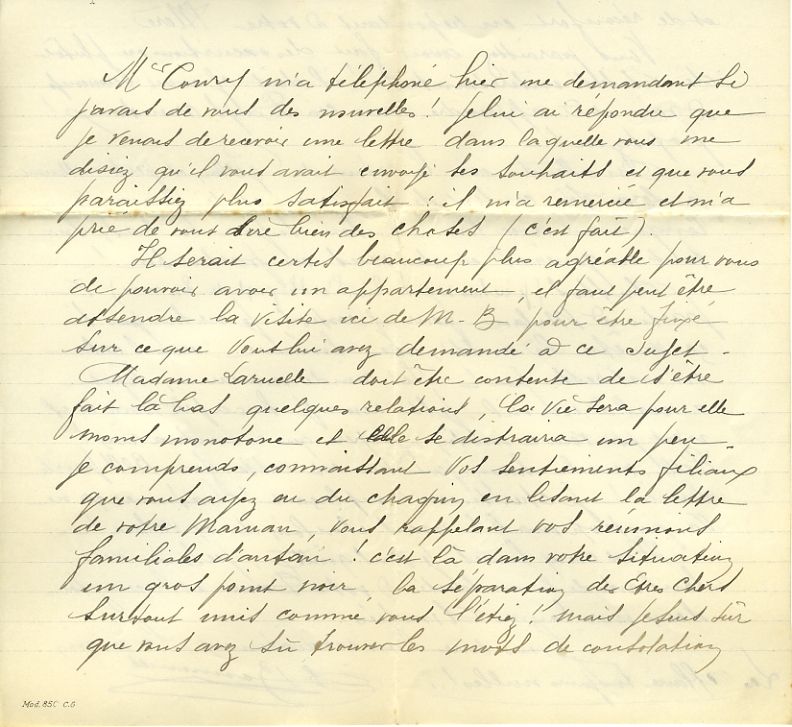 Mr Couref m'a téléphoné hier me demandant si
j'avais de vous des nouvelles! je lui ai répondu que
je venais de recevoir une lettre dans laquelle vous me
disiez qu'il vous avait envoyé ses souhaits et que vous
paraissiez plus satisfait : il m'a remercié et m'a
prié de vous dire bien des choses (c'est fait).
Il serait certes beaucoup plus agréable pour vous
de pouvoir avoir un appartement, il faut peut être
attendre la visite ici de M. B pour être fixé
sur ce que vous lui avez demandé à ce sujet.
Madame Laruelle doit être contente de s'être
fait là bas quelques relations, la vie sera pour elle
moins monotone et elle se distraira un peu.
je comprends, connaissant vos sentiements filiaux
que vous ayez eu du chagrin en lisant la lettre
de votre Maman, vous rappelant vos reunions
familiales d'antan! c'est là dans votre situation
un gros point noir la séparation des êtres chers
surtout unis comme vous l'étiez! mais je suis sûr
que vous avez sû trouver les mots de consolation
Mod. 85C C.G